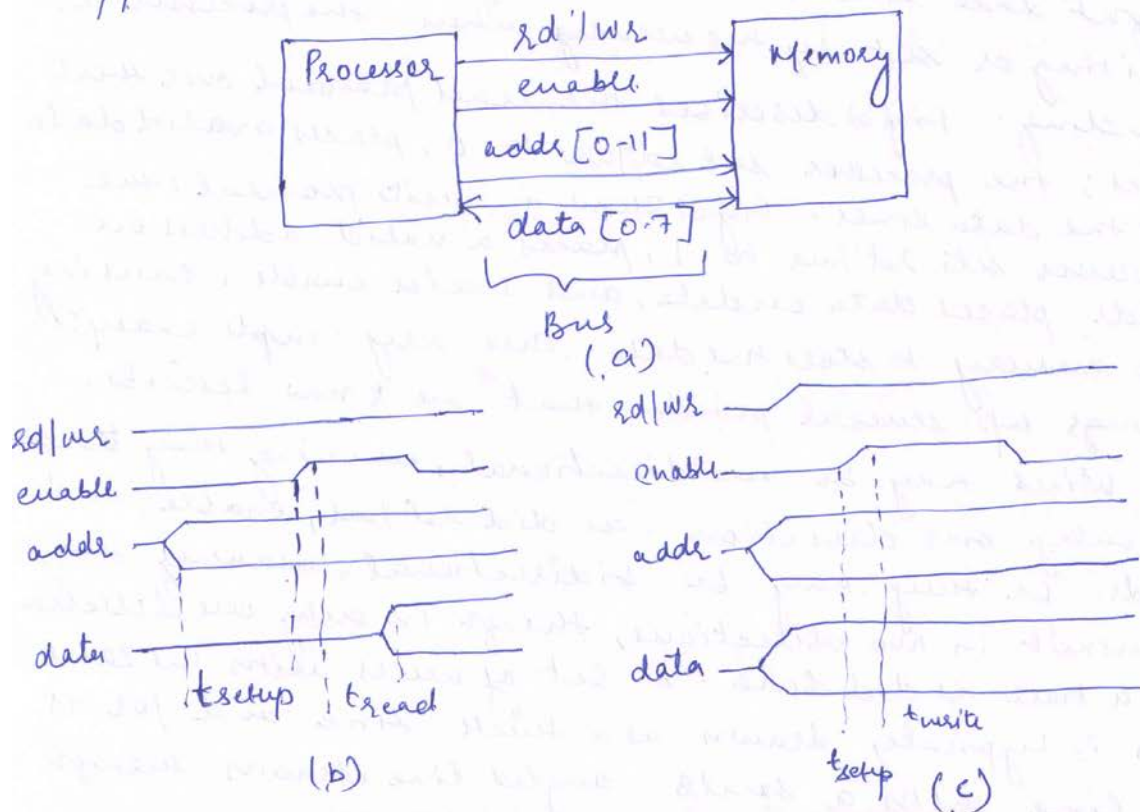 Processor
rd'/wr
enable
addr [0-11]
data [0-7]
Memory
Bus
(a)
rd/wr
enable
addr
data
tsetup
tread
(b)
rd/wr
enable
addr
data
tsetup
twrite
(c)